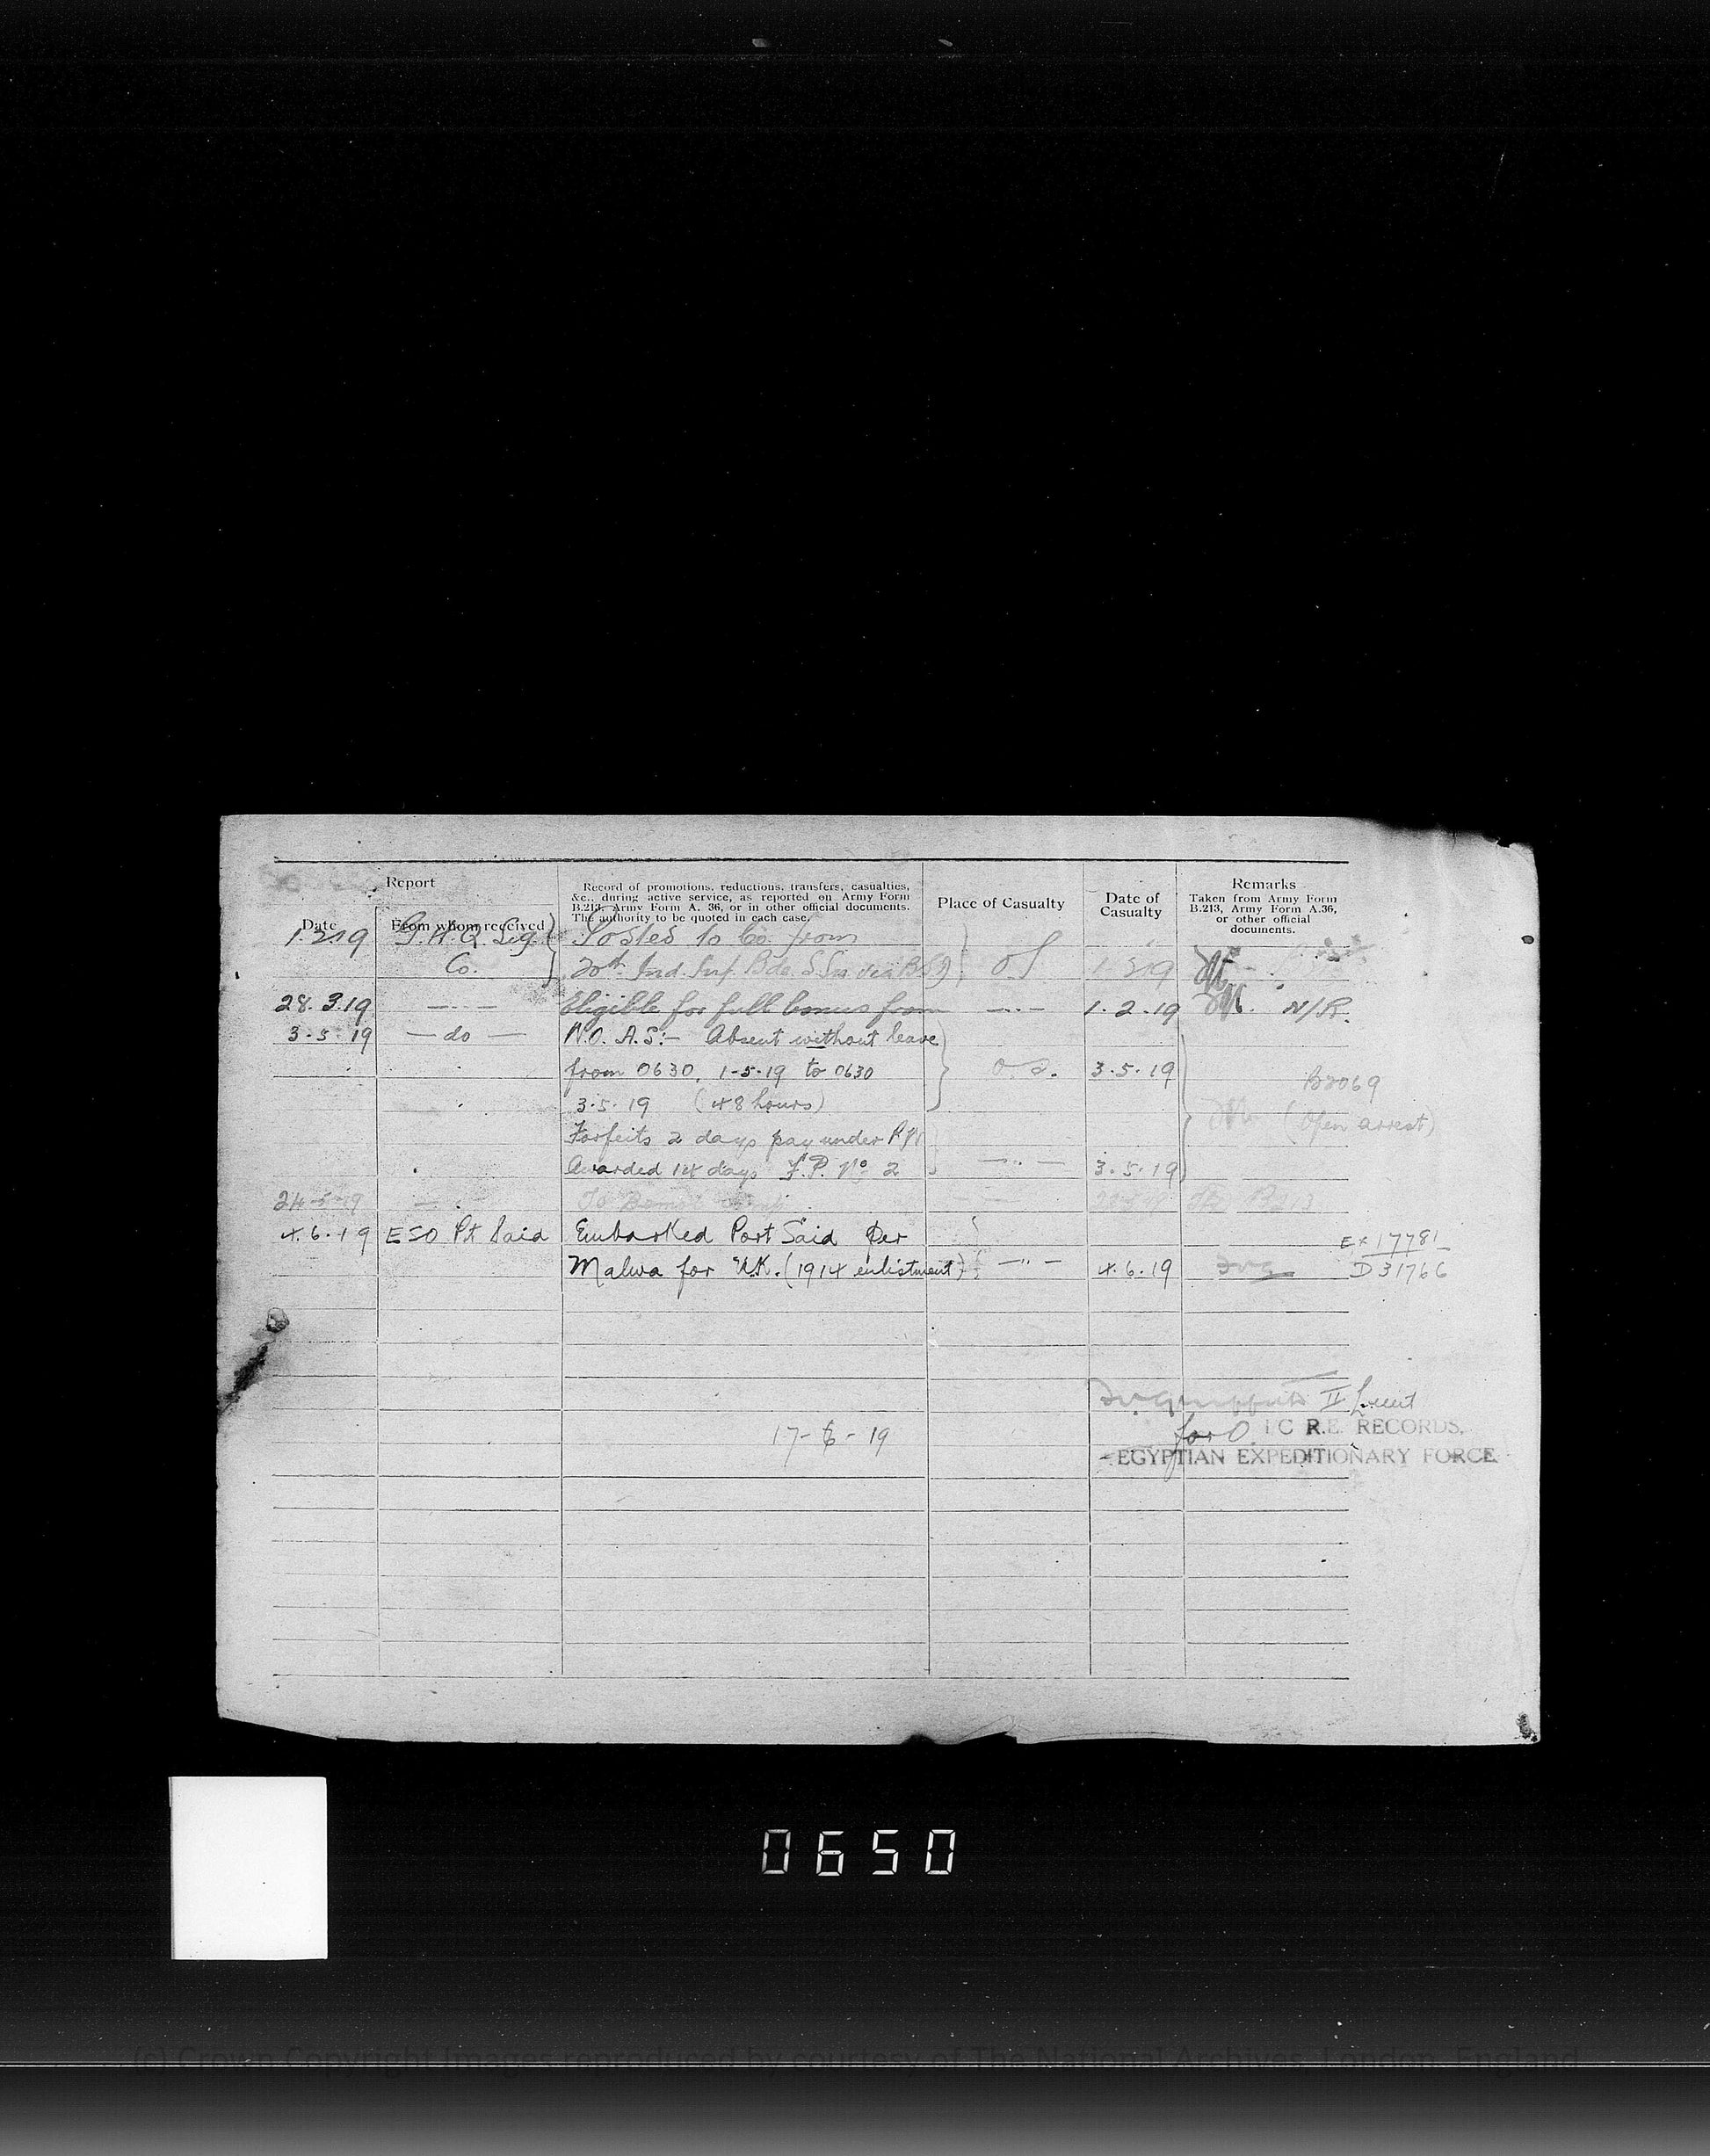 Report
Record of promotions, reductions, transfers, casualties,
&c., during active service, as reported on Army Form
B.213, Army Form A. 36, or in other official documents.
The authority to be quoted in each case.
Place of Casualty
Date of
Casualty
Remarks
Taken from Army Form
B.213, Army Form A.36,
or other official
documents.
Date
From whom received
1.2.19 G.H.Q. Sig. Posted to Co. from
Co. 20th Ind. Inf. Bde. S. Sn via B 1.2.19
28.3.19 —..— Eligible for full bonus from —..— 1.2.19 N/R.
3.5.19 — do — W.O.A.S:- Absent without leave
from 0630, 1-5-19 to 0630 3.5.19 B2069
3.5.19 (48 hours) (Open arrest)
Forfeits 2 days pay under
Awarded 14 days F.P. No 2 —..— 3.5.19
24-5-19 To B213
4.6.19 ESO Pt Said Embarked Port Said Per Ex 17781
Malwa for U.K. (1914 enlistment) —..— 4.6.19 D 31766
II Lieut
17-6-19
for O. I C R.E. RECORDS,
EGYPTIAN EXPEDITIONARY FORCE
0650
(c) Crown Copyright Images reproduced by courtesy of The National Archives, London, England.